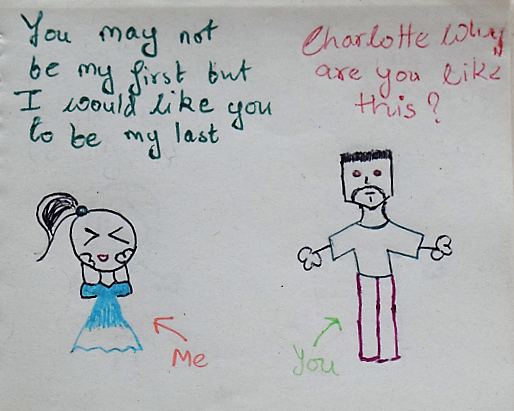 You may not
be my first but
I would like you
to be my last
Charlotte Why
are you like
this?
Me
You